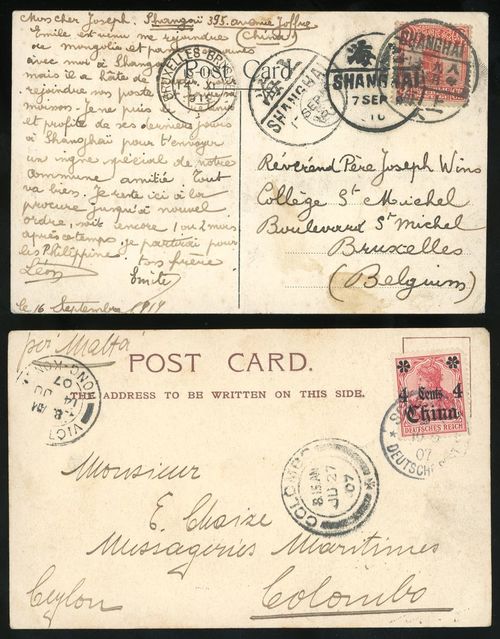 Mon cher Joseph. Shangaï 395. avenue Joffre
(China)
Emile est venu me rejoindre
de mongolie et
avec moi à Shanghaï
mais il a hâte de
rejoindre nos
maison. Je ne puis
et profite de ses derniers jours
à Shanghaï pour t'envoyer
un signe spécial de notre
commune amitié Tout
va bien. Je reste ici à la
procure jusqu'à nouvel
ordre, soit encore 1 ou 2 mois
après ce temps, je partirai pour
les Philippines
Léon
tes frères
Emile
le 16 Septembre 1919
Post Card
BRUXELLES-BRUSSEL
SHANGHAI
SEP
海
SHANGHAI
7 SEP
SHANGHAI
Révérend Père Joseph Wins
Collège St Michel
Boulevard St Michel
Bruxelles
(Belgium)
per Malta
POST CARD.
THE ADDRESS TO BE WRITTEN ON THIS SIDE.
HONG KONG
VICT
JU
14
07
4 Cents 4
China
DEUTSCHES REICH
07
DEUTSCHE
COLOMBO
8 15 AM
JU 27
07
Monsieur
E. Chaize
Messageries Maritimes
Colombo
Ceylon